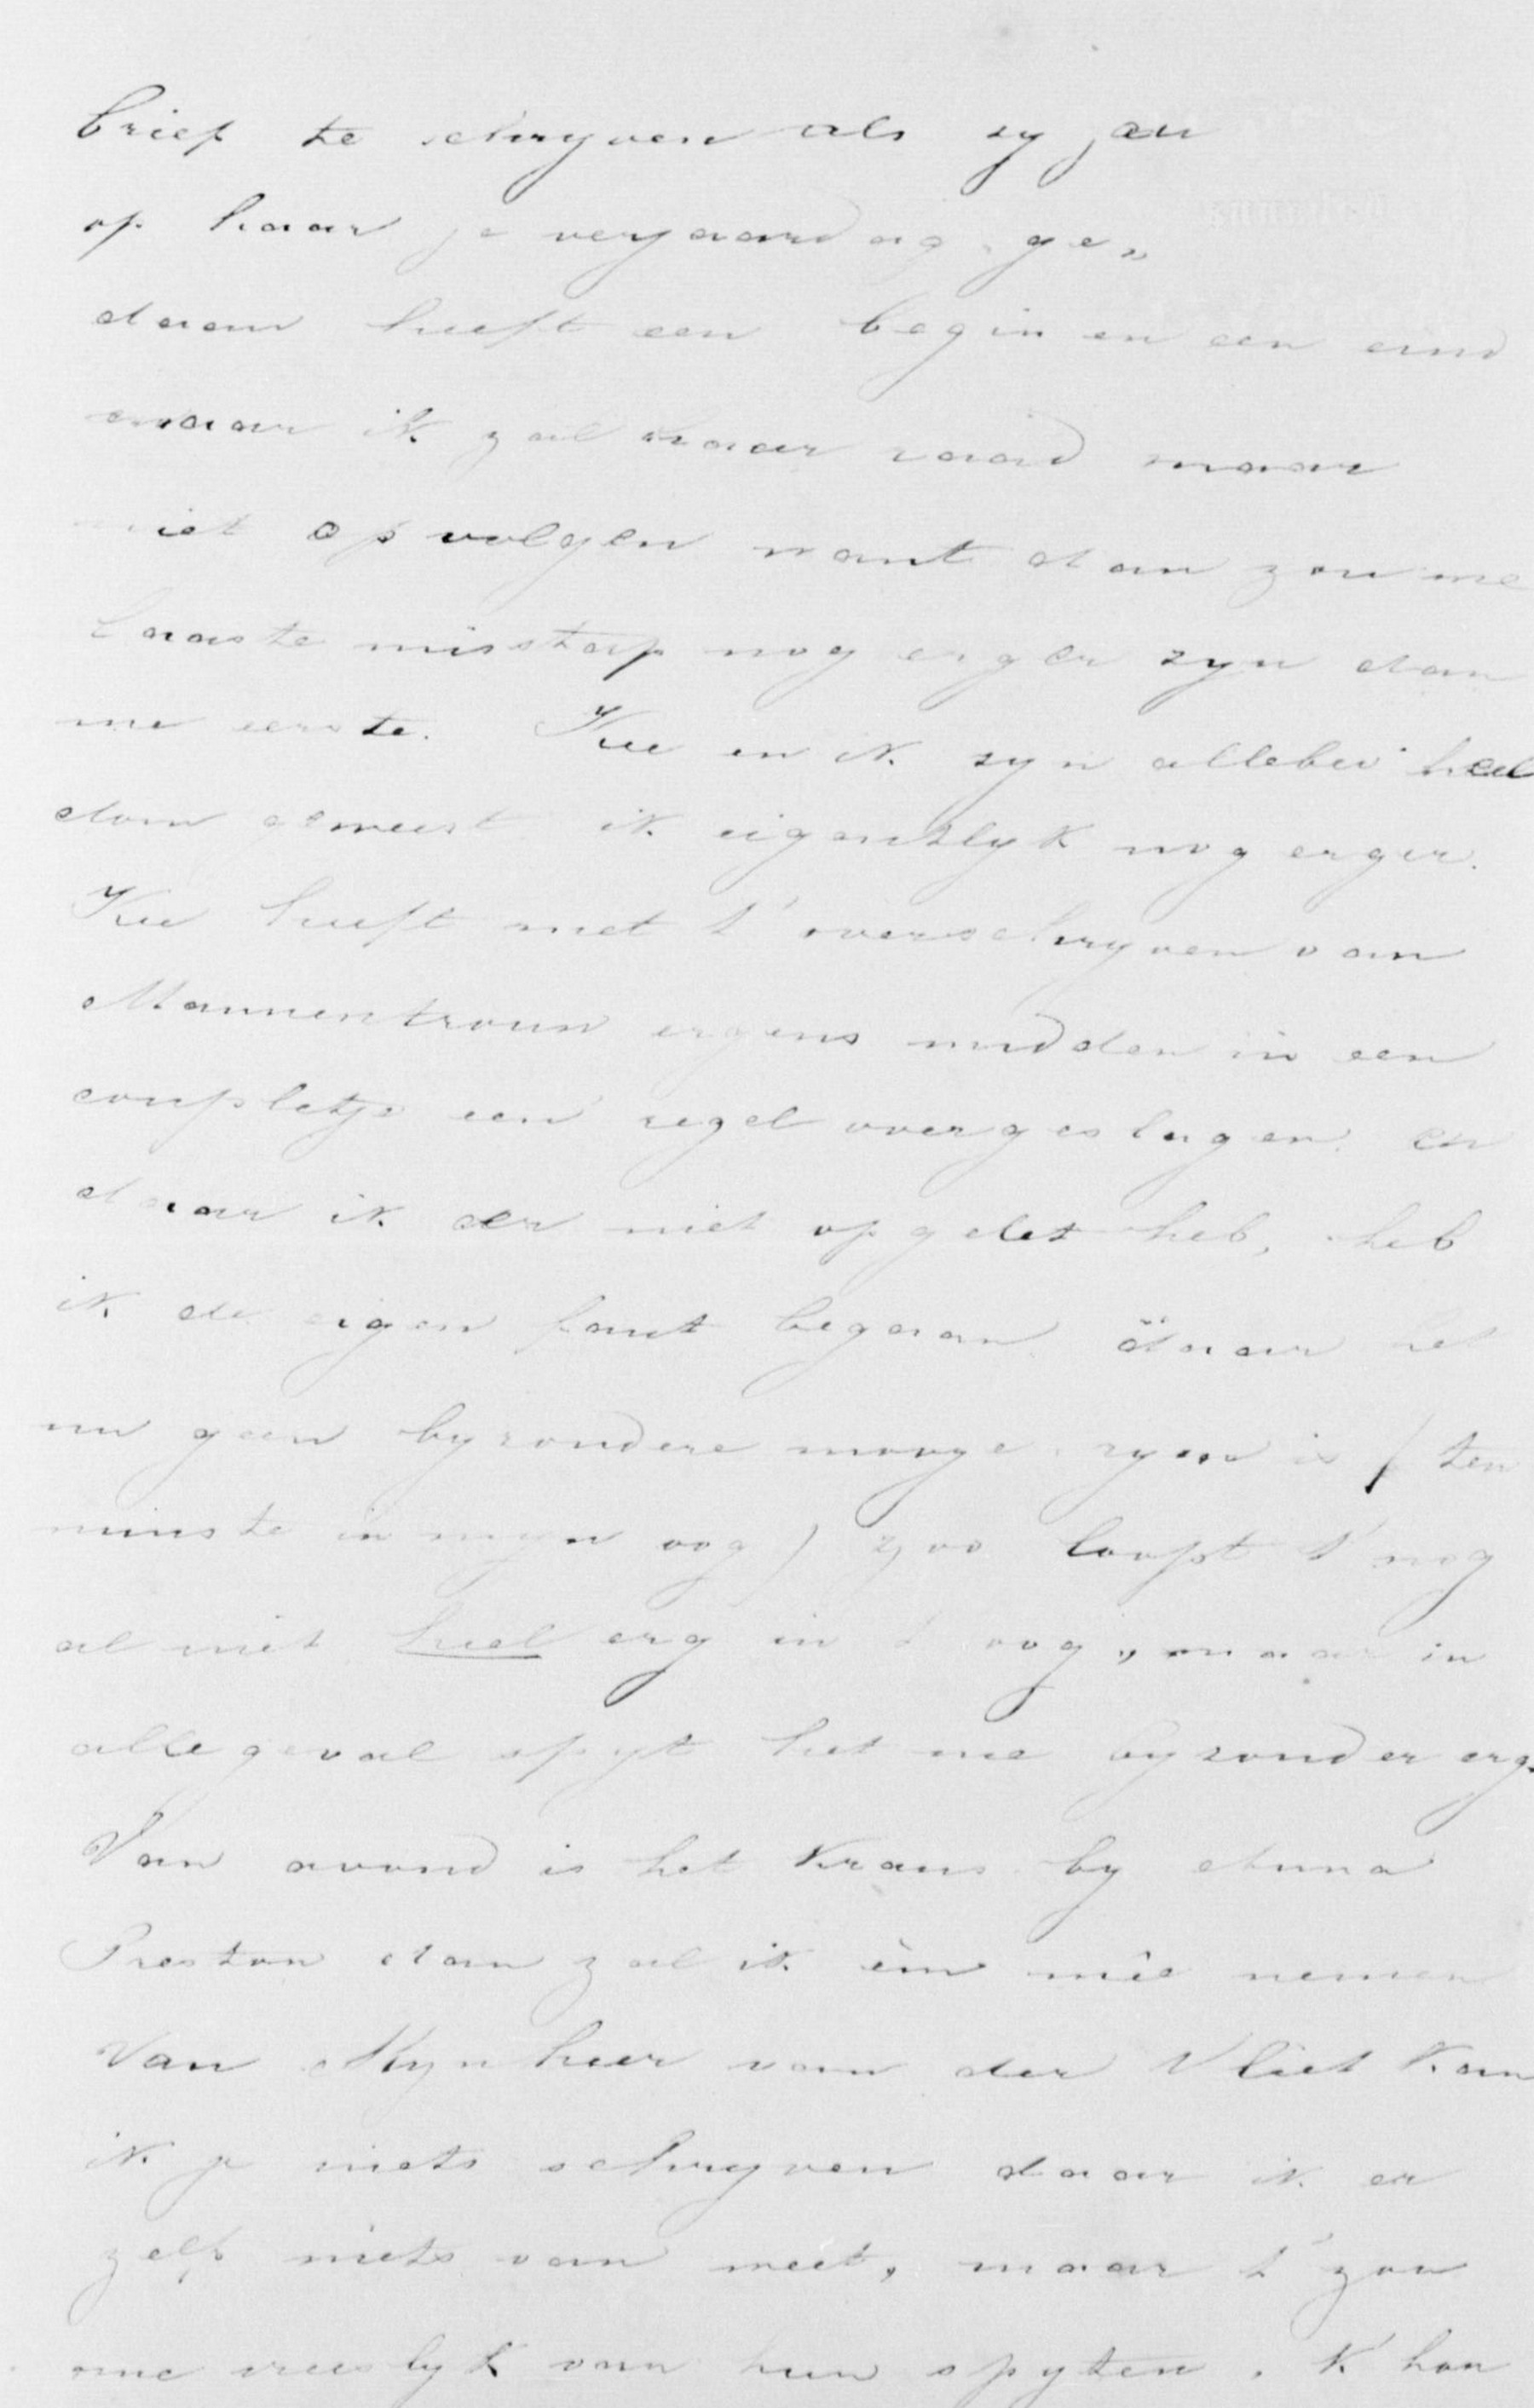 brief te schryven als zy jou
op haar je verjaardag ge„
daan heeft een begin en een eind
maar ik zal haar raad maar
niet opvolgen want dan zou me
laaste misstap nog erger zyn dan
me eerste. Kee en ik zyn allebei heel
dom geweest ik eigentlyk nog erger.
Kee heeft met t' overschryven van
Mannentrouw ergens midden in een
coupletje een regel overgeslagen en
daar ik er niet op gelet heb, heb
ik de eigen fout begaan. daar het
nu geen byzondere mooye rym is (ten
minste in myn oog) zoo loopt t' nog
al niet heel erg in t oog, maar in
alle geval spyt het me byzonder erg.
Van avond is het Krans by Anna
Preston dan zal ik em mêe nemen
Van Mynheer van der Vliet kan
ik je niets schryven daar ik er
zelf niets van weet, maar t' zou
me vreeslyk van hun spyten. K' hou